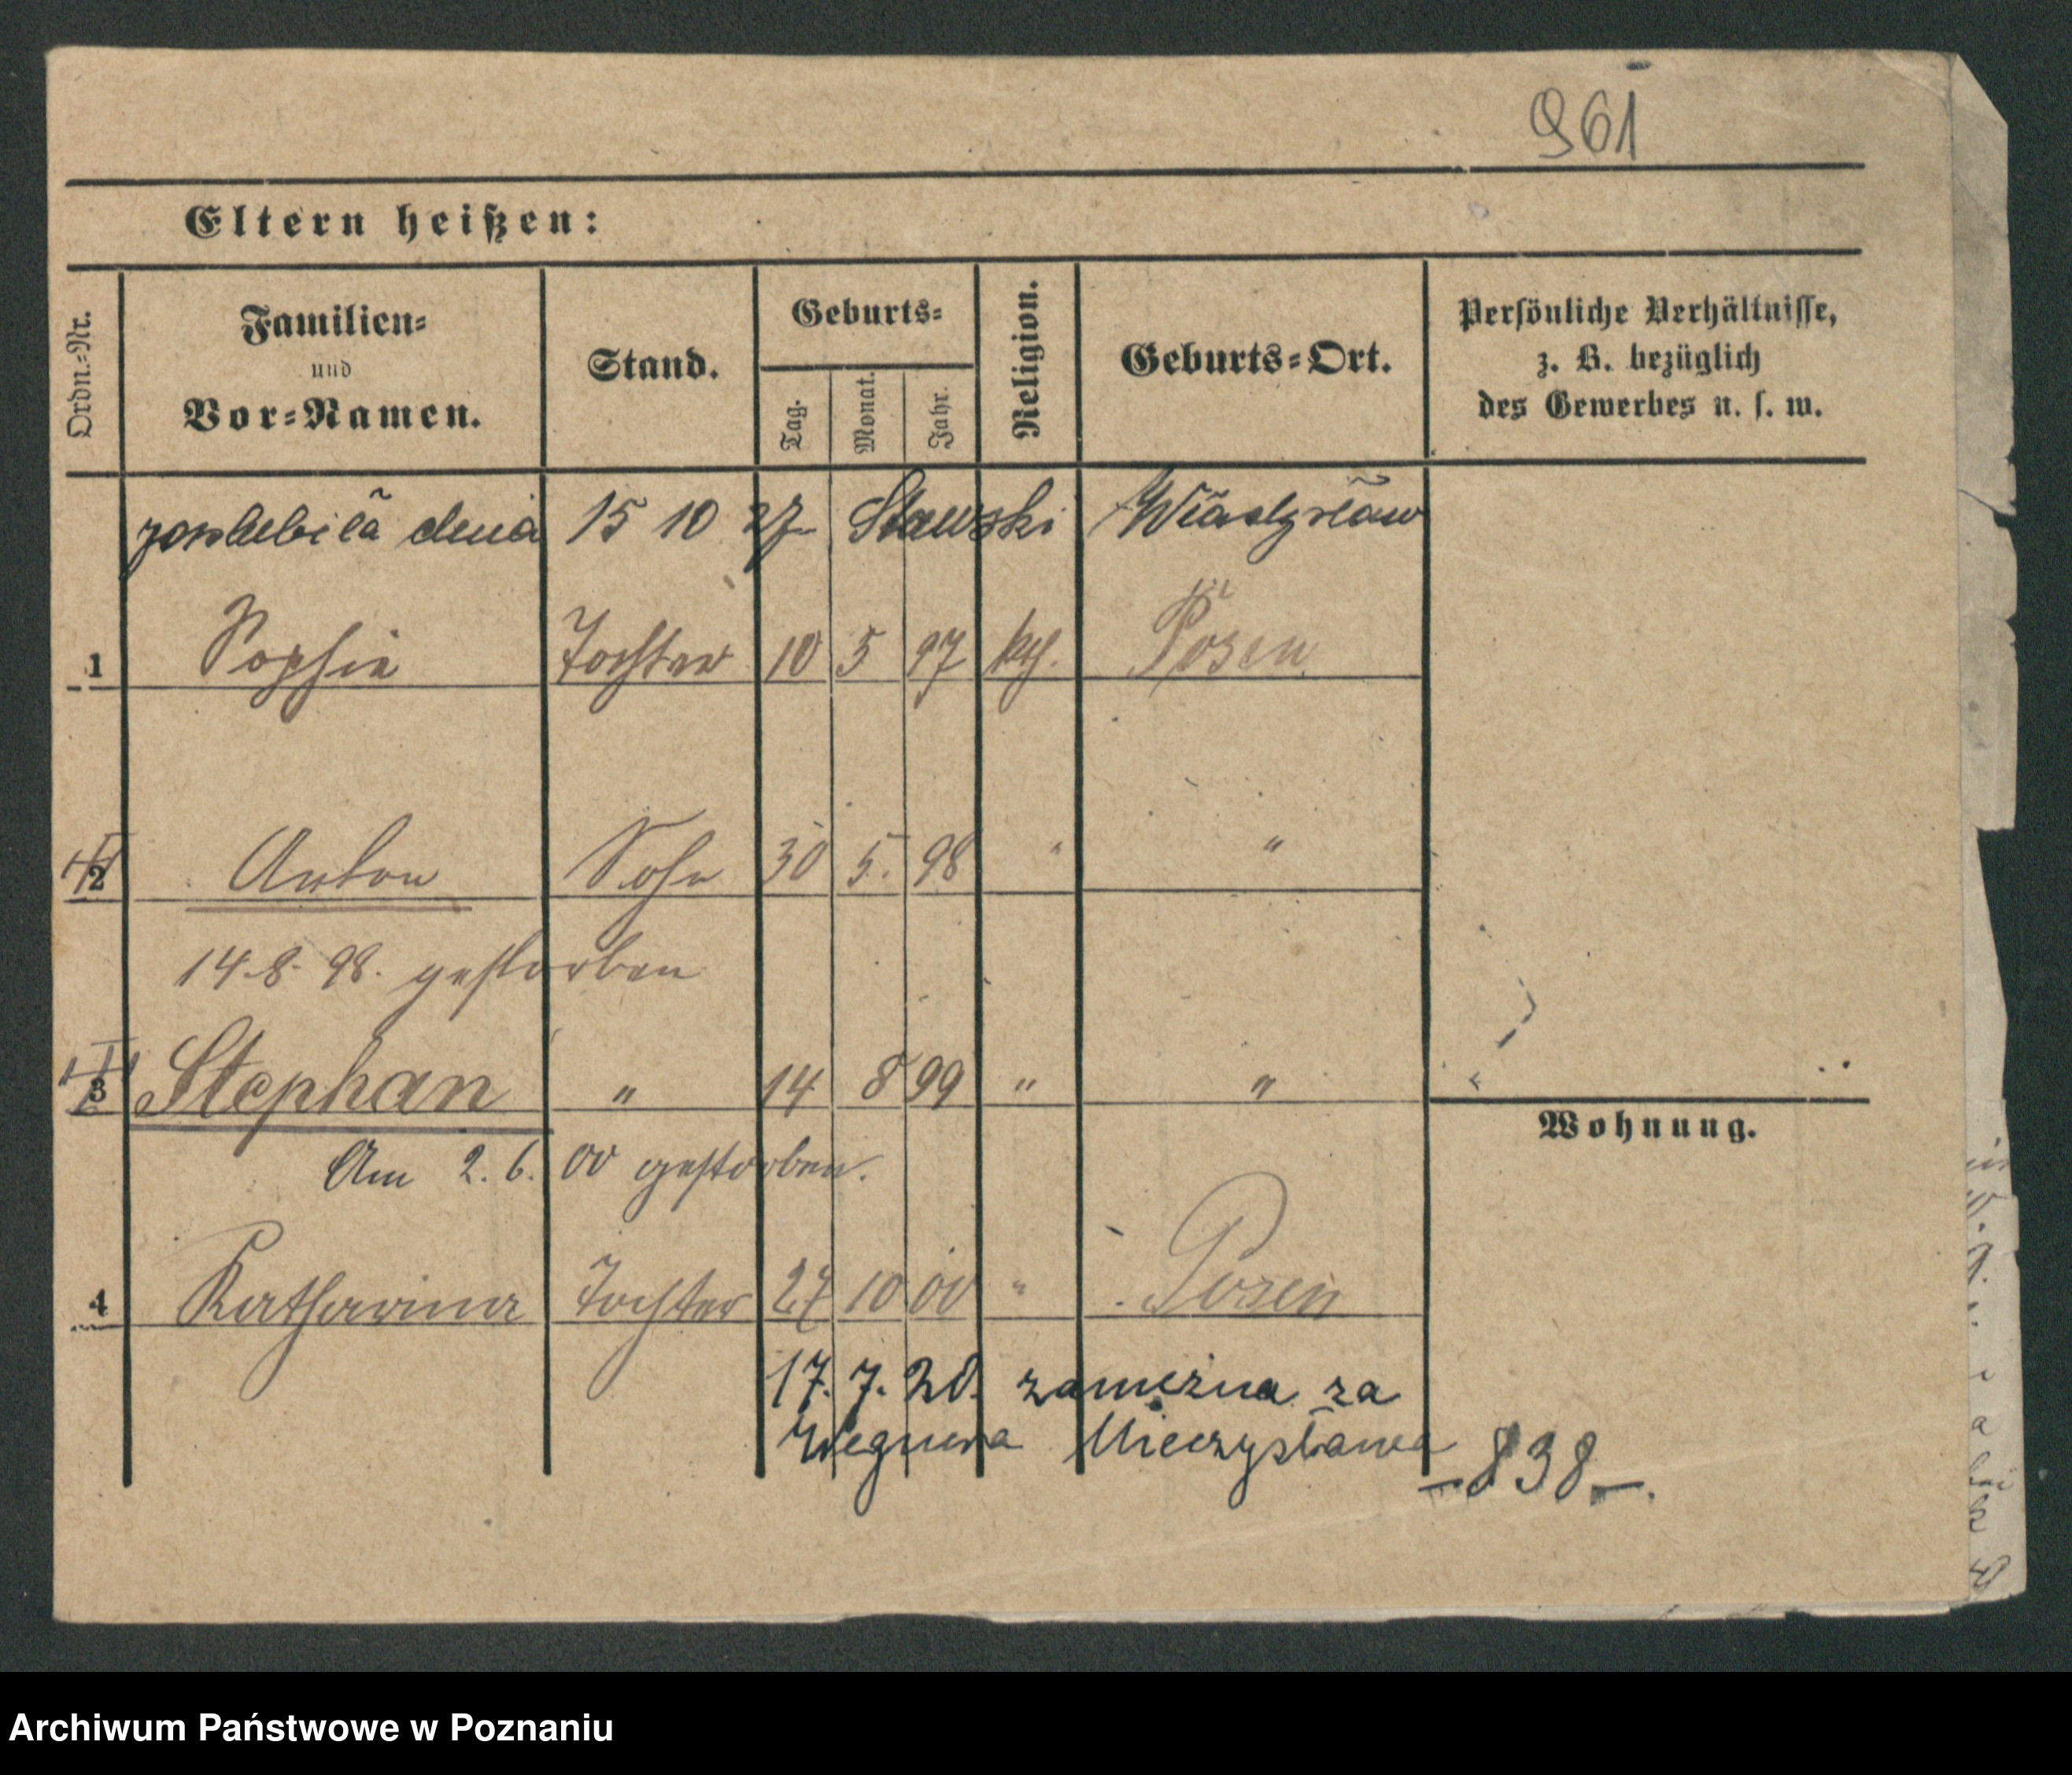 961
Eltern heißen:
Ordn.=Nr.
Familien=
und
Vor=Namen.
Stand.
Geburts=
Tag.
Monat.
Jahr.
Religion.
Geburts=Ort.
Persönliche Verhältnisse,
z. B. bezüglich
des Gewerbes u. s. w.
poślubiła dnia 15 10 27 Stawski Władysław
1 Sophie Tochter 10 5 97 kth. Posen
2 Anton Sohn 30 5. 98 " "
14. 8. 98. gestorben
3 Stephan " 14 8 99 " "
Am 2. 6. 00 gestorben.
Wohnung.
4 Katharina Tochter 27 10 00 " Posen
17. 7. 28. zamężna za
Wegnera Mieczysława
- 838 -.
Archiwum Państwowe w Poznaniu